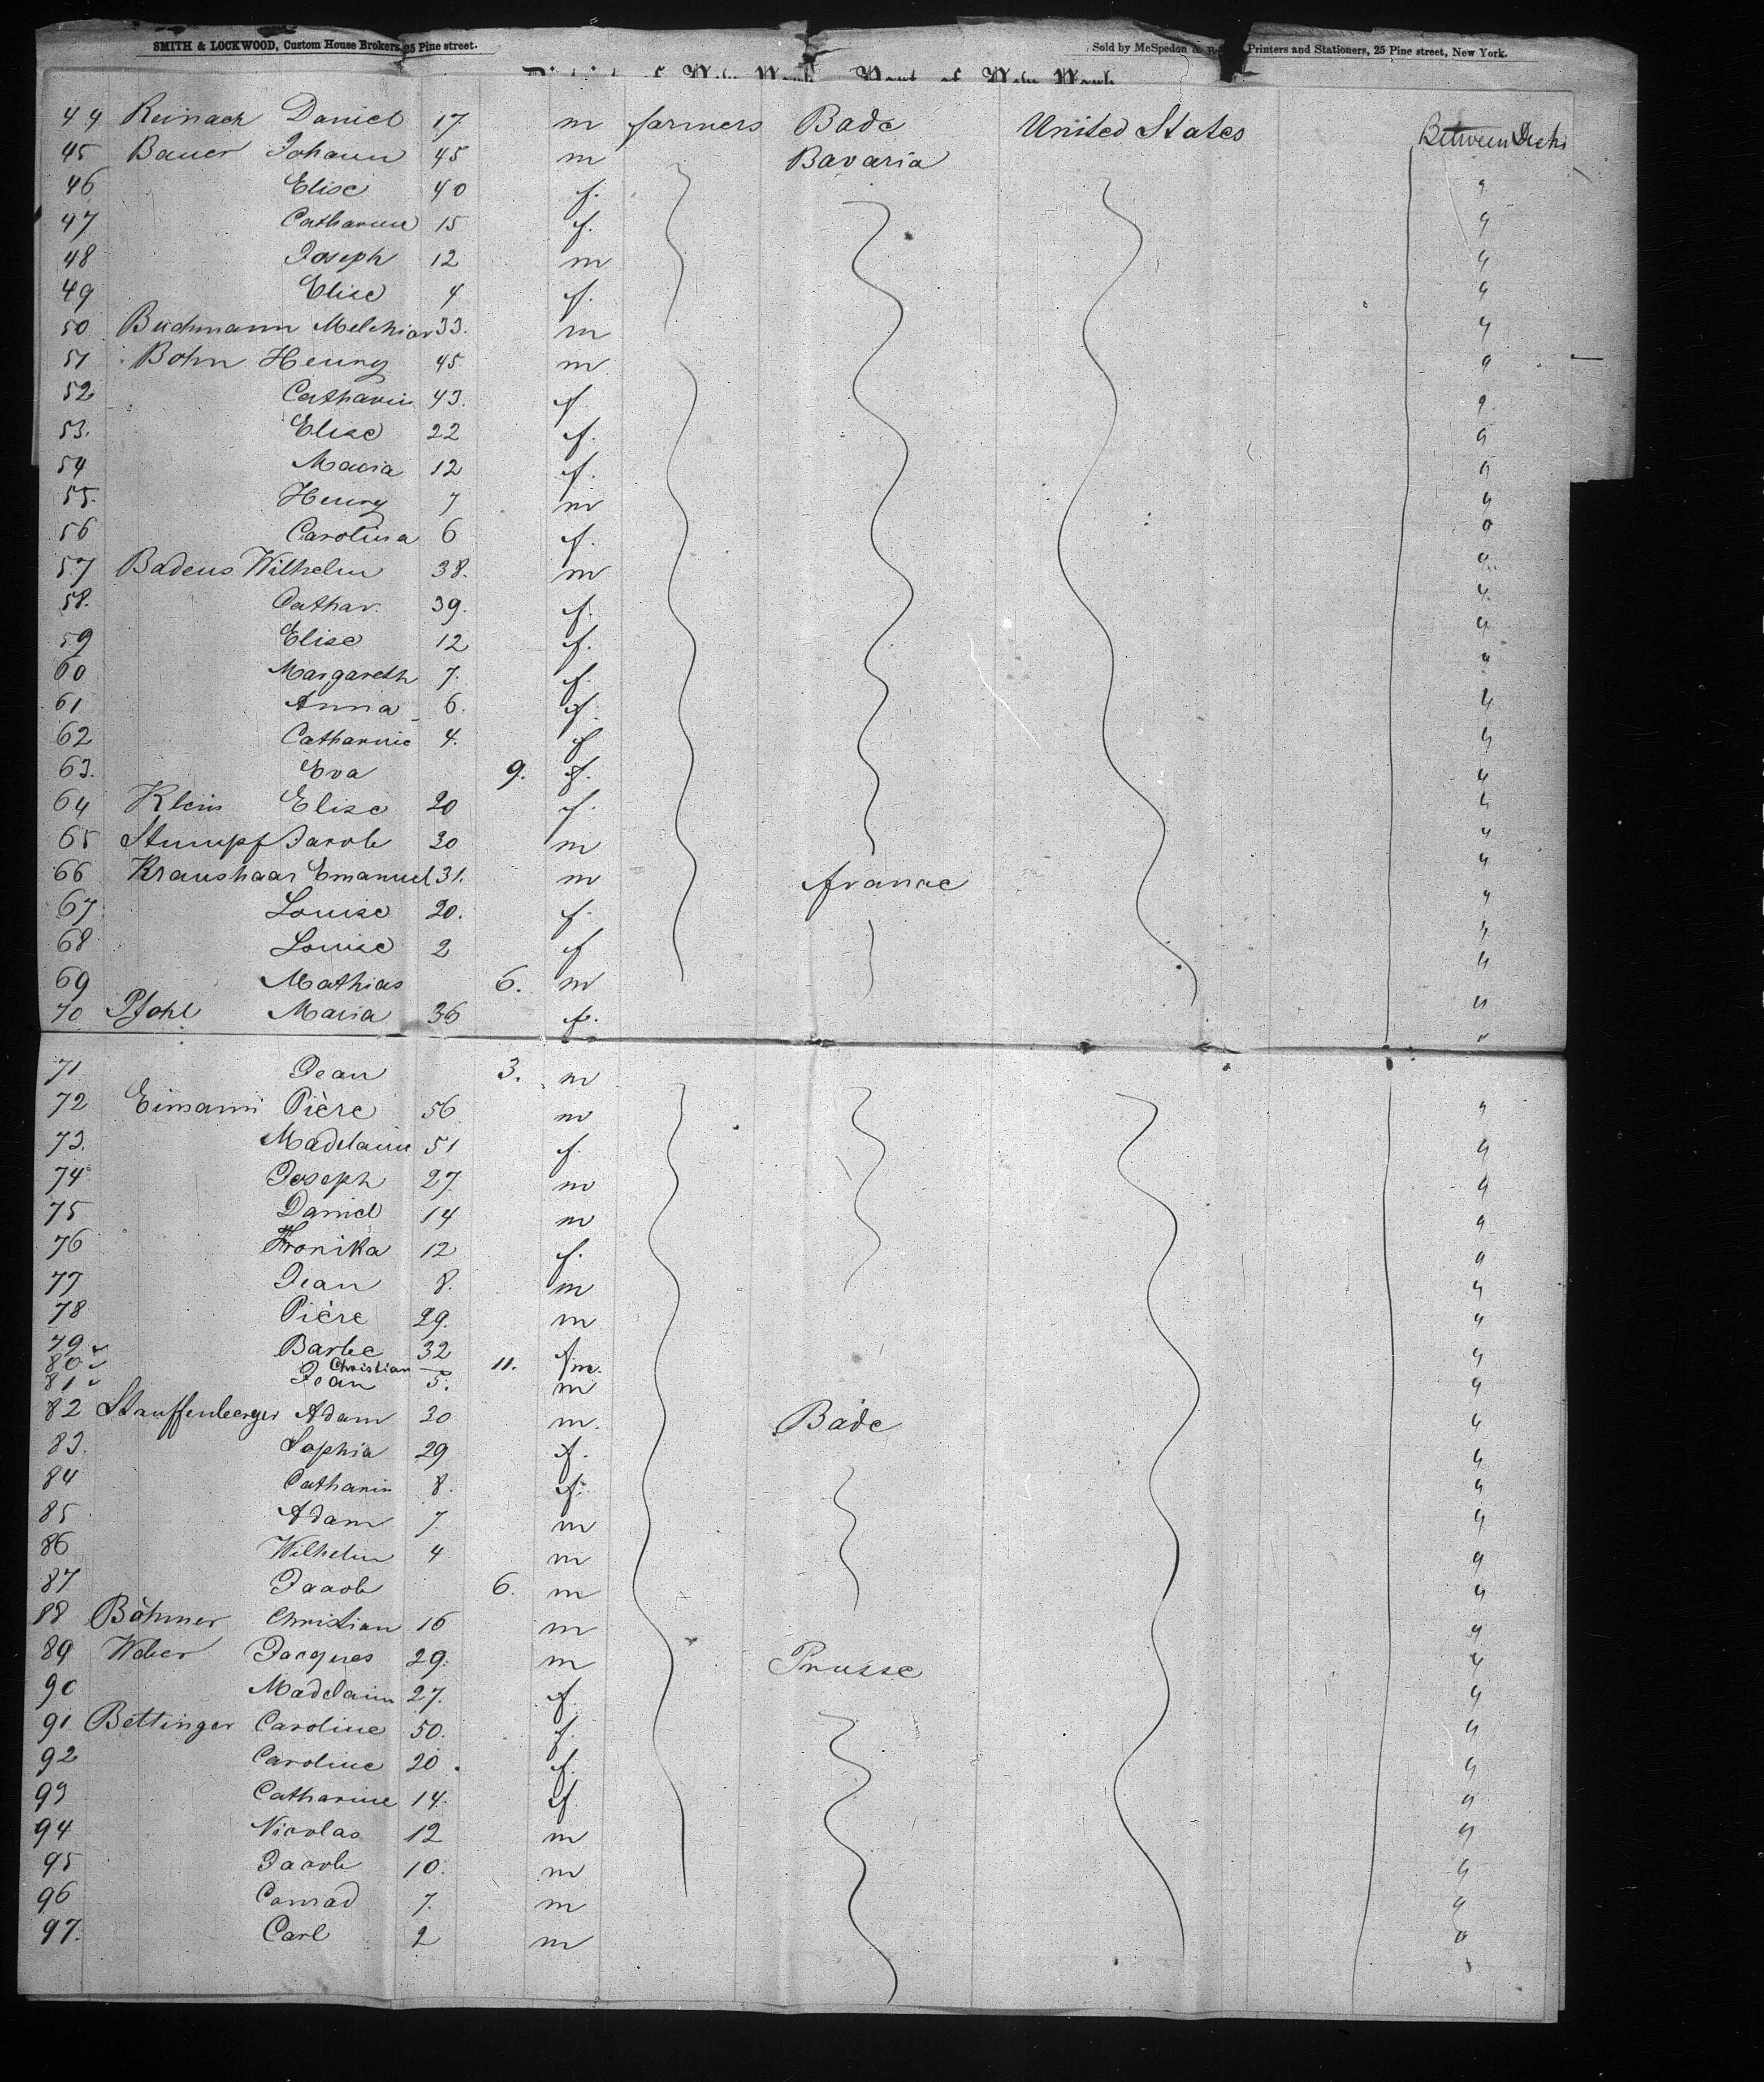 SMITH & LOCKWOOD, Custom House Brokers, 25 Pine street. Sold by McSpedon & Printers and Stationers, 25 Pine street, New York.
District of New York Port of New York
44 Reinach Daniel 17 m farmers Bade United States Between Decks
45 Bauer Johann 45 m Bavaria
46 Elise 40 f. "
47 Catharine 15 f. "
48 Joseph 12 m "
49 Elise 4 f. "
50 Buchmann Melchior 33. m "
51 Bohn Henry 45. m "
52 Catharin 43. f "
53. Elise 22 f. "
54 Maria 12 f. "
55. Henry 7 m "
56 Carolina 6 f. "
57 Badens Wilhelm 38. m "
58. Cathar. 39. f. "
59 Elise 12 f. "
60 Margareth 7. f. "
61 Anna 6. f. "
62 Catharine 4. f "
63. Eva 9. f. "
64 Klein Elise 20 f. "
65 Stumpf Jacob 30 m "
66 Kraushaar Emanuel 31. m france "
67 Louise 20. f. "
68 Louise 2 f "
69 Mathias 6. m "
70 Pfohl Maria 36 f. "
71 Jean 3. m "
72 Eimann Pière 56 m "
73. Madelaine 51 f. "
74 Joseph 27 m "
75 Daniel 14 m "
76 Fronika 12 f. "
77 Jean 8. m "
78 Pière 29. m "
79 Barbe 32 f "
80 Christian 11. m.
81 Jean 5. m "
82 Stauffenberger Adam 30 m. Bade "
83. Sophia 29 f. "
84 Catharin 8. f. "
85 Adam 7. m "
86 Wilhelm 4 m "
87 Jacob 6. m "
88 Böhmer Christian 16 m "
89 Weber Jacques 29. m Prusse "
90 Madelaine 27. f. "
91 Bettinger Caroline 50. f. "
92 Caroline 20. f. "
93 Catharine 14. f. "
94 Nicolas 12 m "
95 Jacob 10. m "
96 Conrad 7. m "
97. Carl 2 m "